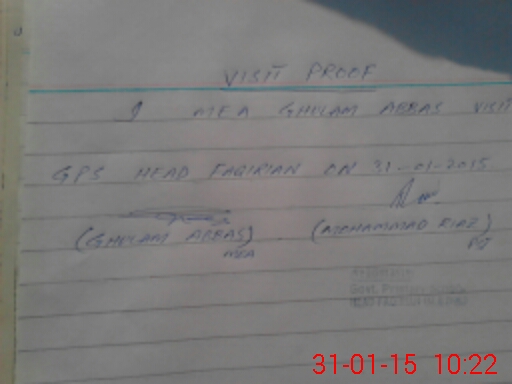 VISIT PROOF
I MEA GHULAM ABBAS VISIT
GPS HEAD FAQIRIAN ON 31-01-2015
(GHULAM ABBAS) (MOHAMMAD RIAZ)
MEA
Govt. Primary
31-01-15 10:22